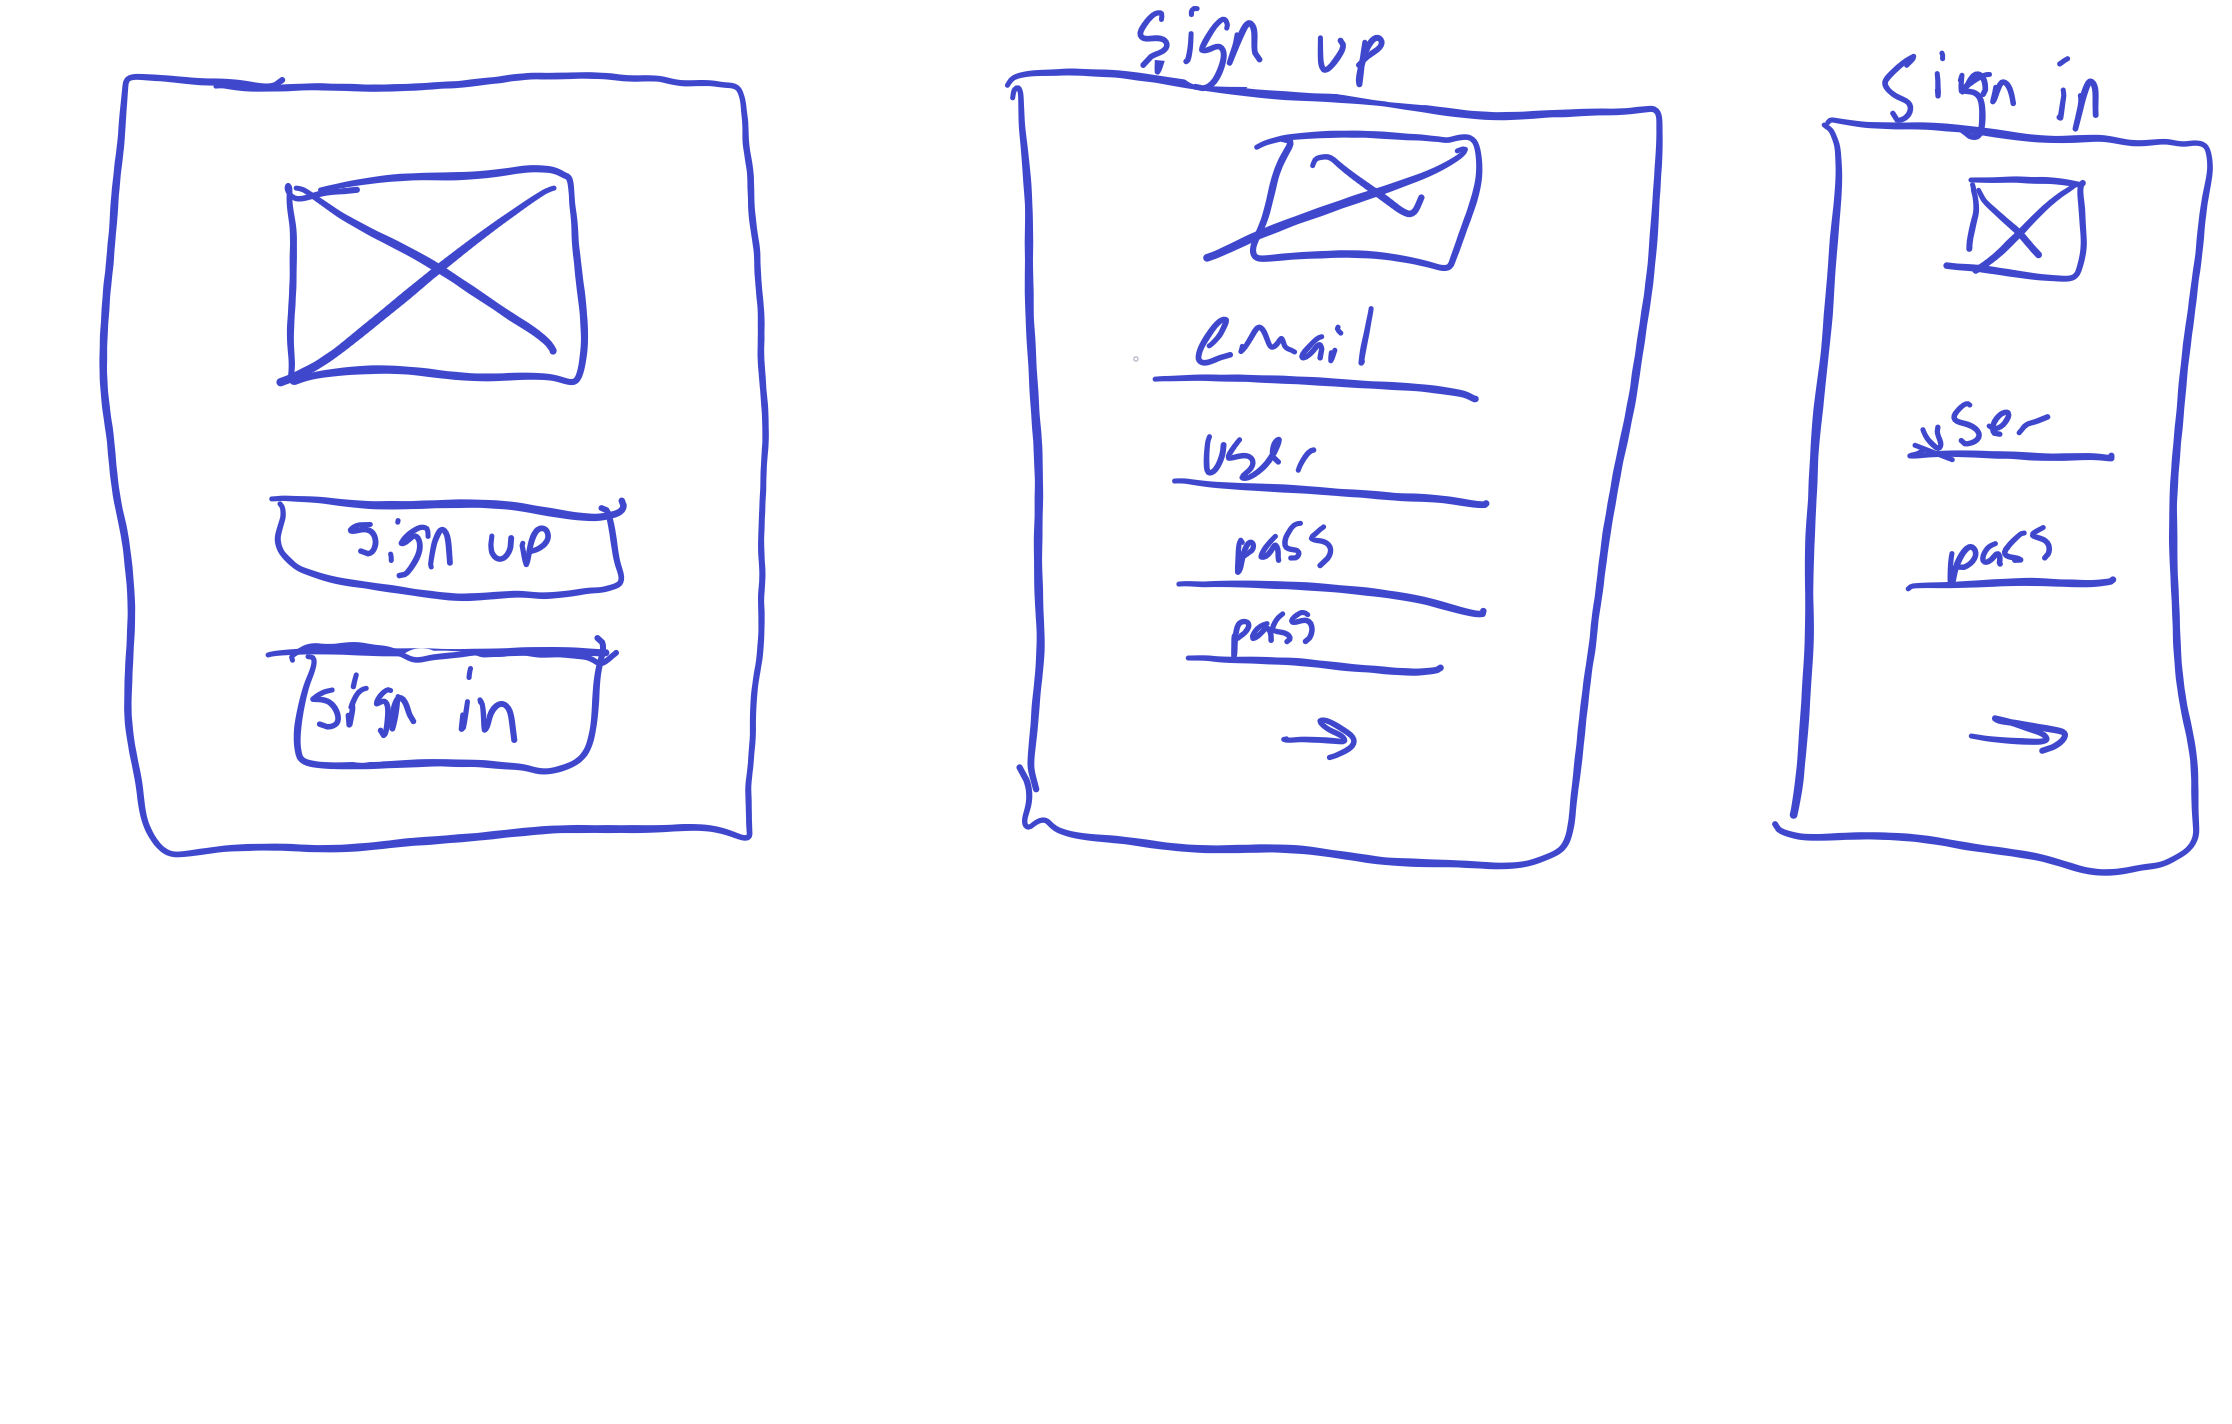 sign up
sign in
Sign up
email
user
pass
pass
Sign in
user
pass